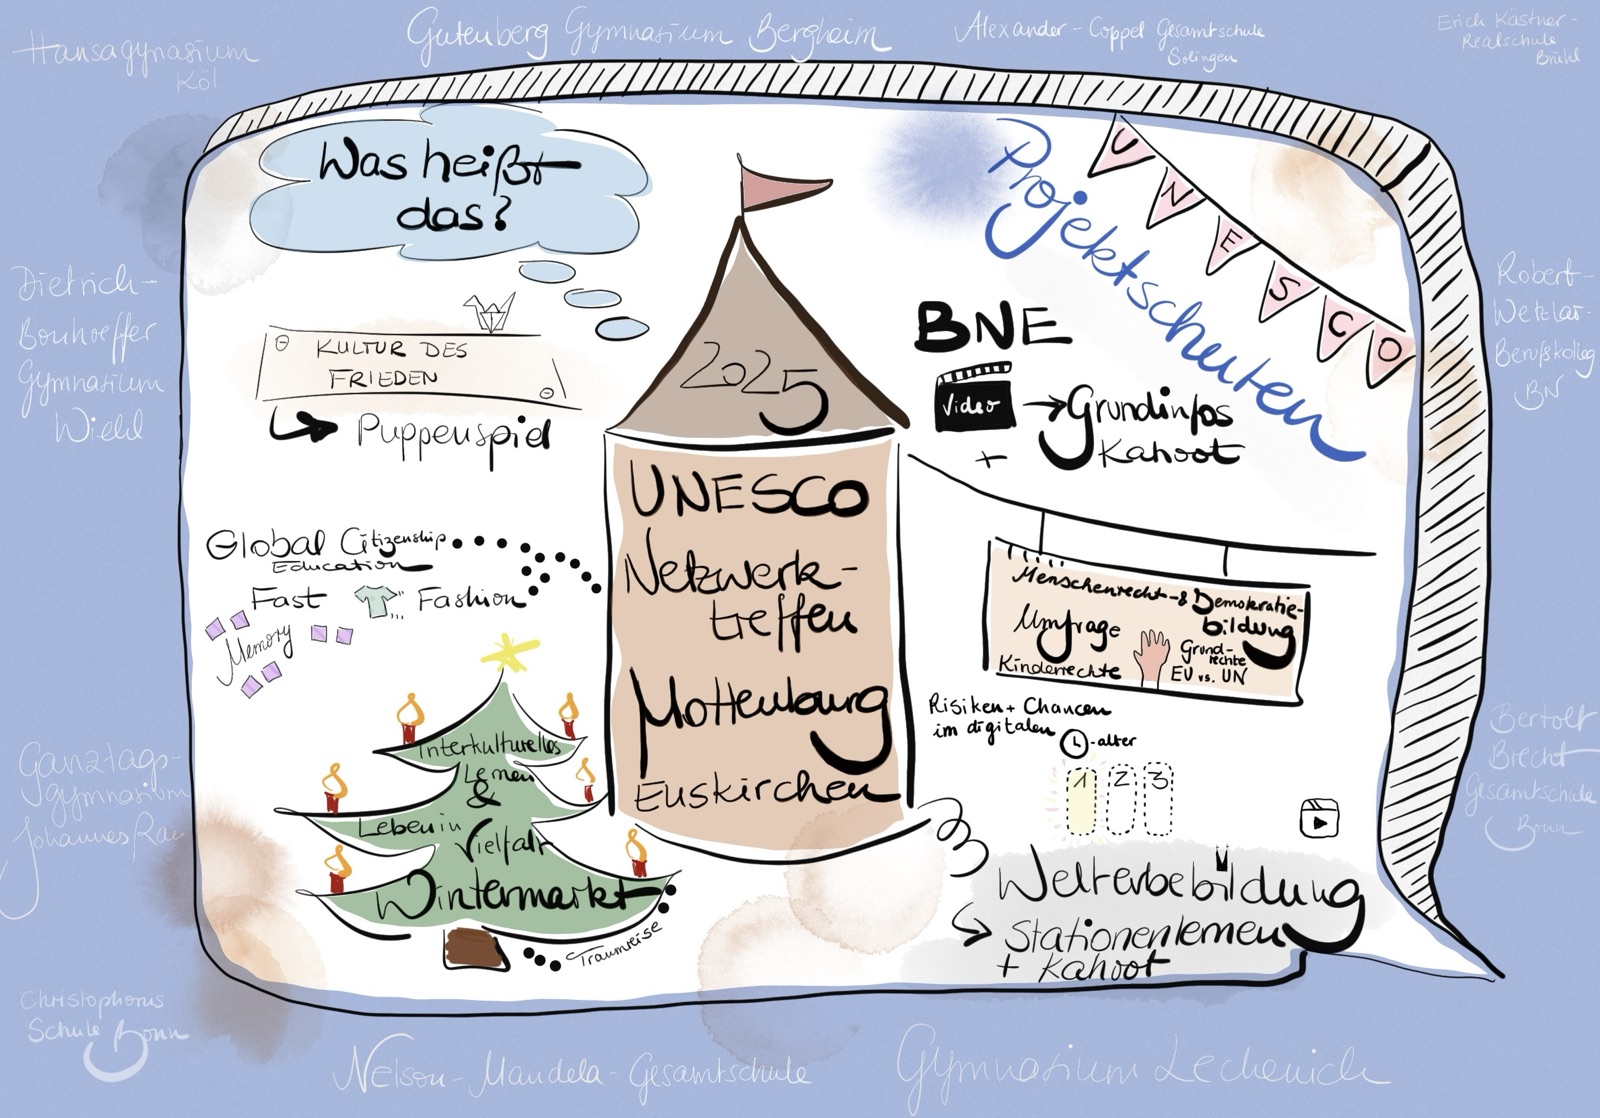 Hansagynasium
Köl
Gutenberg Gymnasium Bergheim
Alexander-Coppel Gesamtschule
Solingen
Erich Kästner-
Realschule
Brühl
Was heißt
das?
Projektschulen
UNESCO
KULTUR DES
FRIEDEN
Puppenspiel
2025
UNESCO
Netzwerk-
treffen
Mottenburg
Euskirchen
BNE
Video
Grundinfos
+ Kahoot
Global Citizenship
Education
Fast Fashion
Memory
Menschenrecht- & Demokratie-
bildung
Umfrage
Kinderrechte
Grund-
rechte
EU vs. UN
Risiken + Chancen
im digitalen
-alter
1 2 3
Interkulturelles
Lernen
&
Leben in
Vielfalt
Wintermarkt
Traumreise
Welterbebildung
Stationenlernen
+ Kahoot
Dietrich-
Bonhoeffer
Gymnasium
Wiehl
Ganztags-
gymnasium
Johannes Rau
Christophorus
Schule Bonn
Nelson-Mandela-Gesamtschule
Gymnasium Lechenich
Robert-
Wetzlar-
Berufskolleg
BN
Bertolt
Brecht
Gesamtschule
Bonn